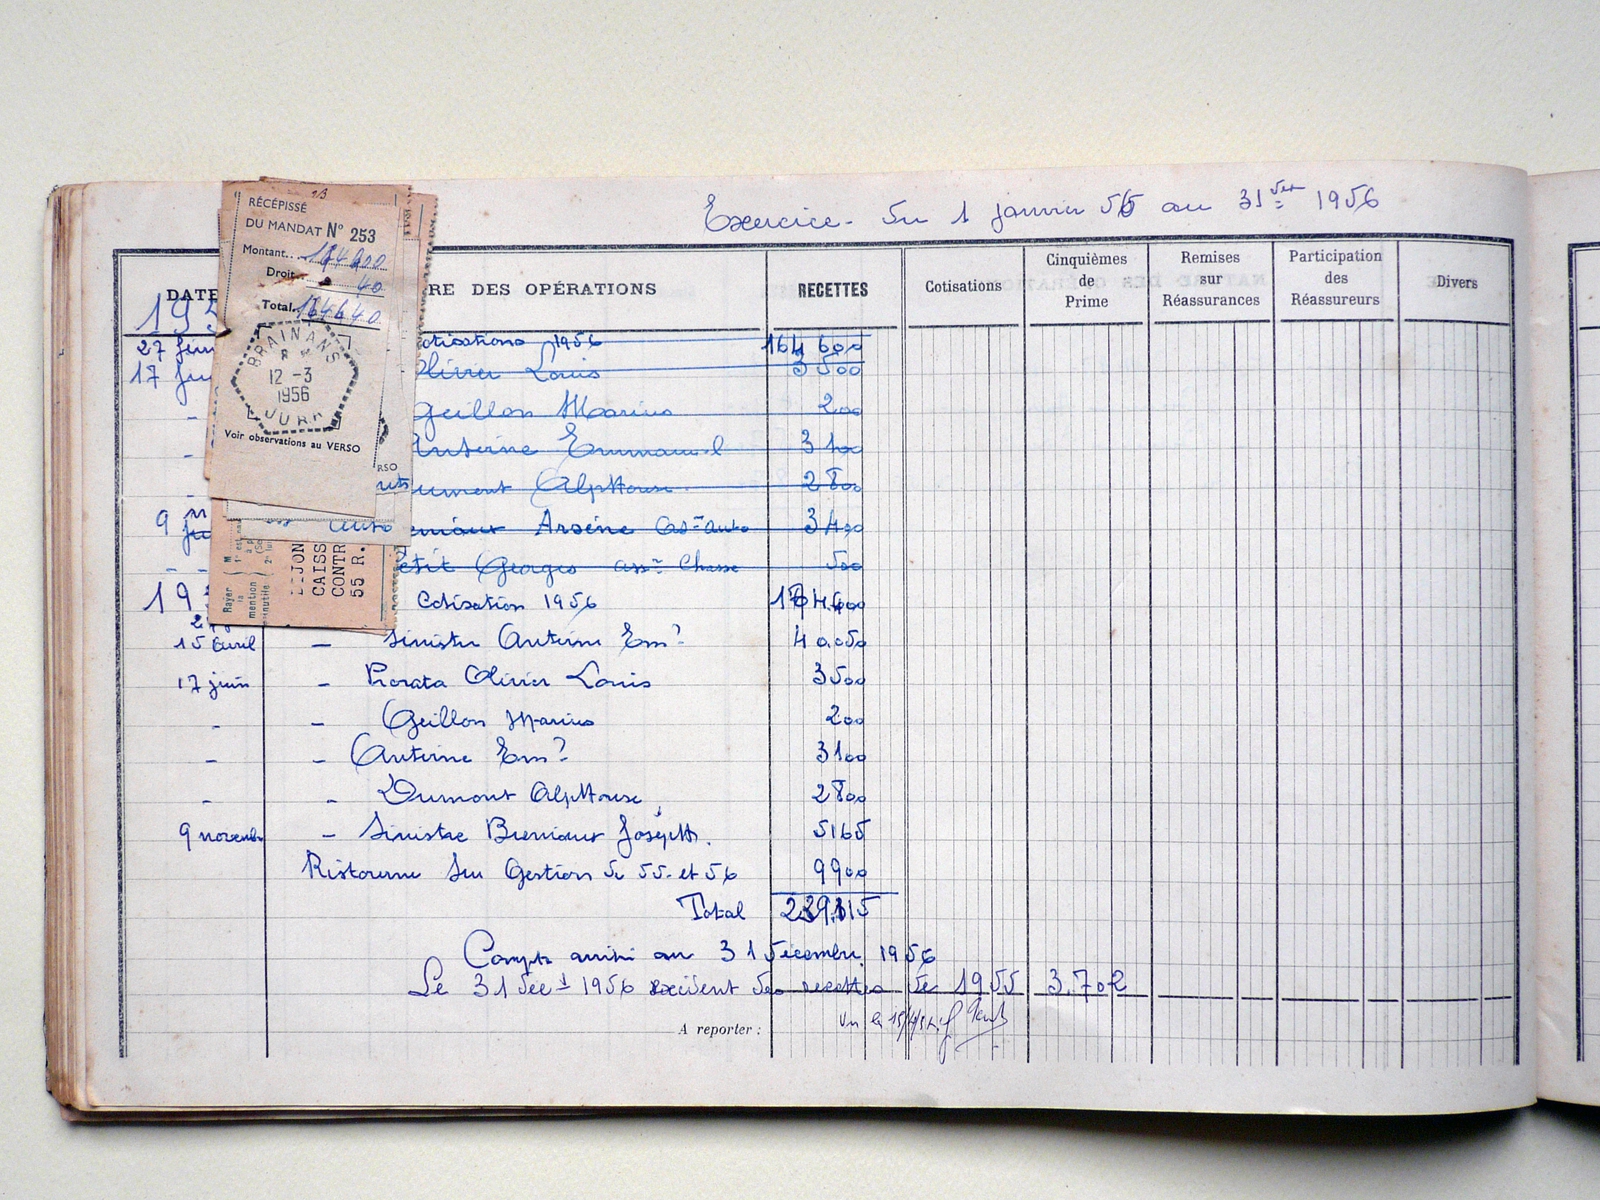 Exercice - Du 1 janvier 56 au 31 1956
RÉCÉPISSÉ
DU MANDAT N° 253
Montant.. 164600
Droit.. 40
Total.. 164640
BRAINANS
12 -3
1956
JURA
Voir observations au VERSO
RSO
DATE
RE DES OPÉRATIONS
RECETTES
Cotisations
Cinquièmes
de
Prime
Remises
sur
Réassurances
Participation
des
Réassureurs
Divers
195
27 otisations 1956 164 600
17 Olivier Louis 3500
- Geillon Marius 200
- Antoine Emmanuel 3100
- ument Alphonse 2800
9 Arsène Ass auto 3400
- - etit Georges ass Chasse 500
DIJON
CAISS
CONTR
55 R.
Rayer
la
mention
inutile
19 Cotisation 1956 164.600
15 Avril - Sinistre Antoine Em 40.050
17 juin - Prorata Olivier Louis 3500
- - Geillon Marius 200
- - Antoine Em 3100
- - Dumont Alphonse 2800
9 novembre - Sinistre Joseph. 5165
Ristourne sur Gestion de 55. et 56 9900
Total 229.315
Compte arrêté au 31 Décembre. 1956
Le 31 Dec 1956 excédent des recettes de 1955 3.702
A reporter :
Vu le